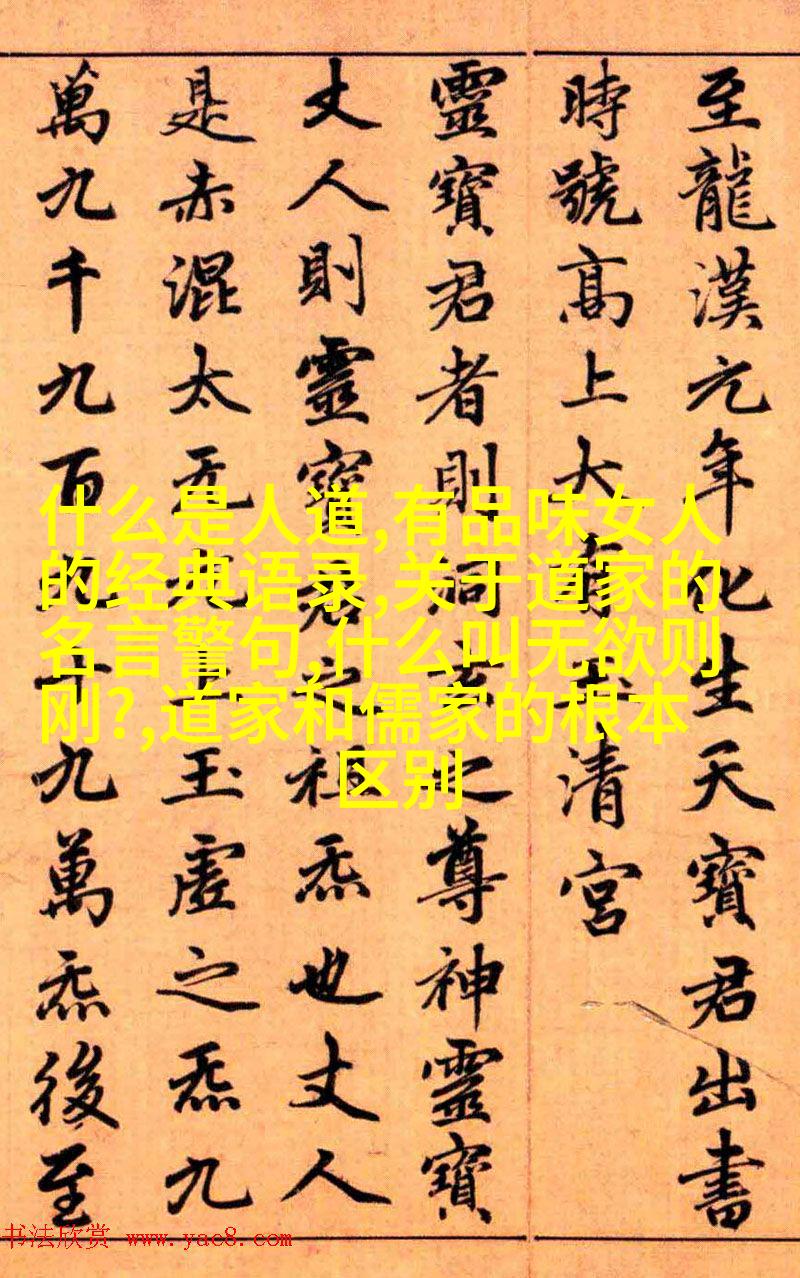 至龍漢元年化生天寶君出書
時號高上大有玉清宮
靈寶君者則洞玄之尊神靈寶
丈人則靈寶君之祖炁也丈人
是赤混太无元上玉虛之炁九
萬九千九百九十九萬炁後至
什么是人道,有品味女人
的经典语录,关于道家的
名言警句,什么叫无欲则
刚?,道家和儒家的根本
区别
书法欣赏 www.yac8.com